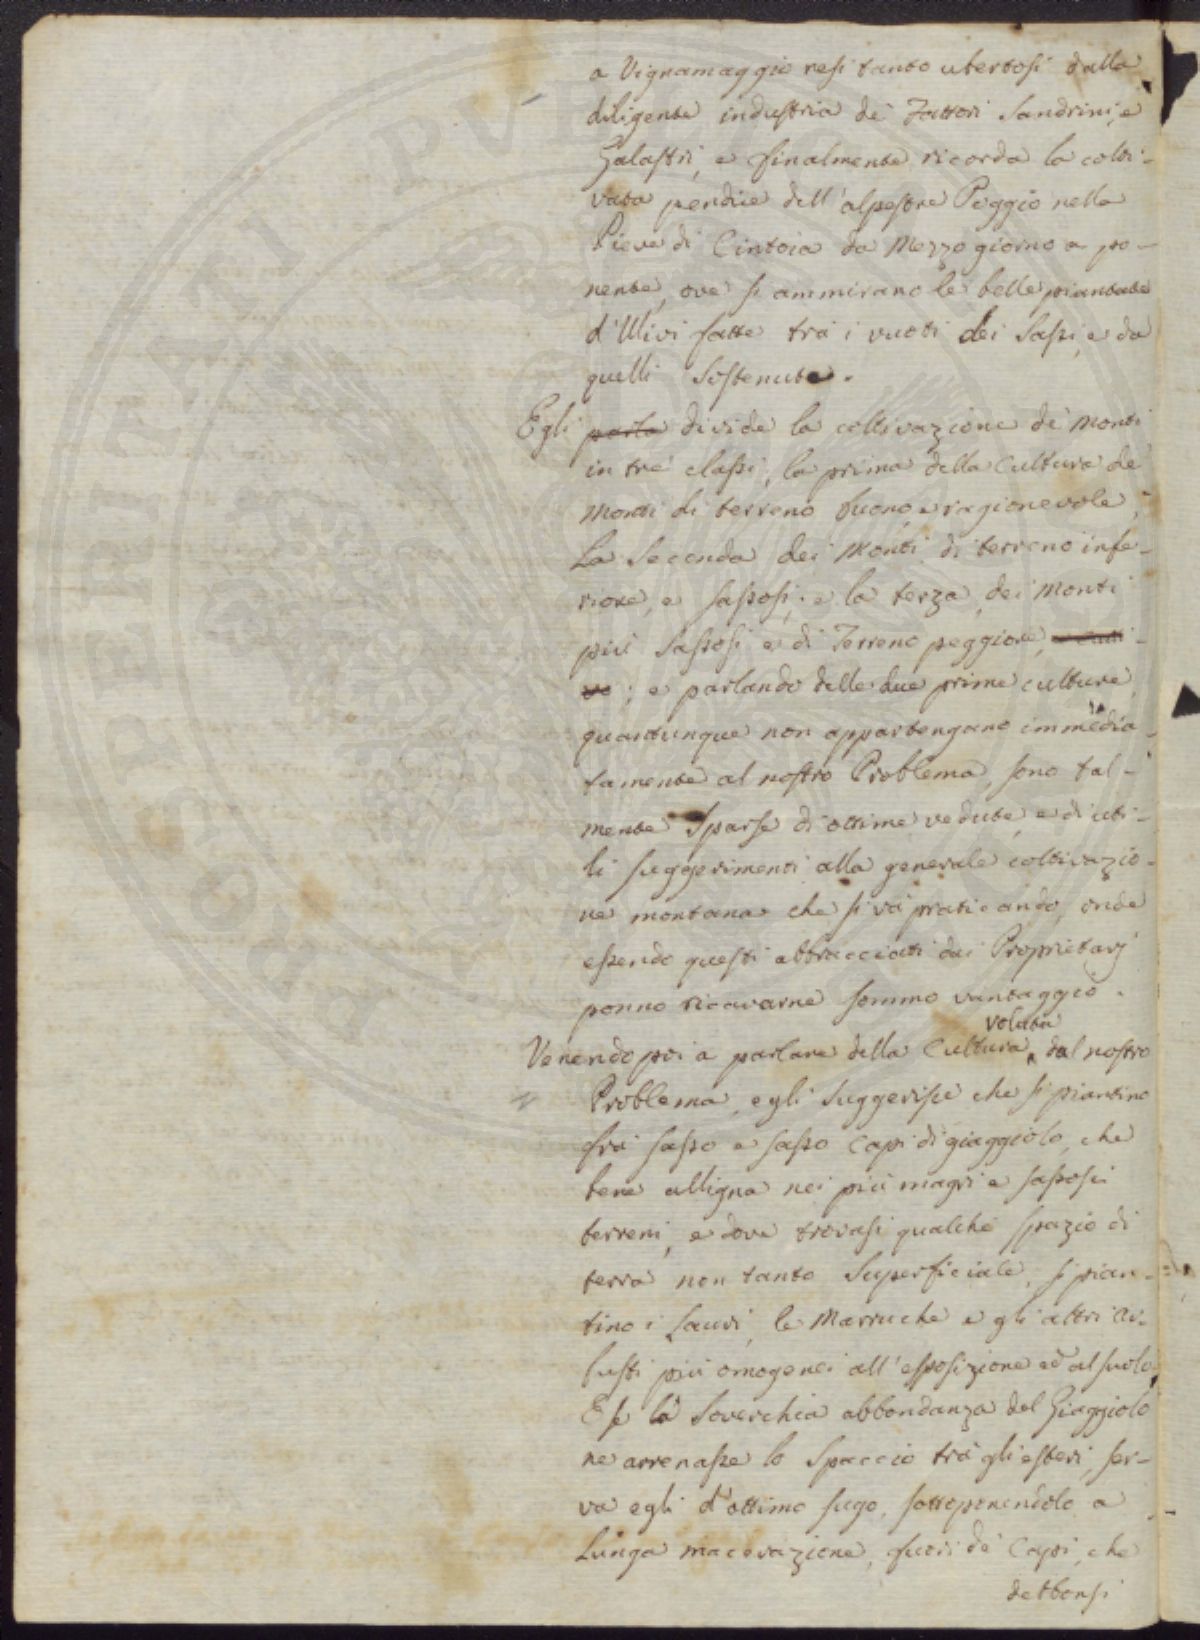 a Vignamaggio resi tanto ubertosi dalla
diligente industria de' Fattori Sandrini, e
Galastri, e finalmente ricorda la colti-
vata pendice dell'alpestre Poggio nella
Pieve di Cintoia da Mezzo giorno a po-
nente, ove si ammirano le belle piantate
d'Ulivi fatte trà i vuoti dei Sassi, e da
quelli Sostenute.
Egli parla divide la coltivazione de' Monti
in tre classi, la prima della Cultura de
Monti di terreno buono, e ragionevole,
La Seconda dei Monti di terreno infe-
riore, e sassosi, e la terza dei Monti
più Sassosi e di Terreno peggiore,
; e parlando delle due prime culture,
quantunque non appartengano immedia-
tamente al nostro Problema, sono tal-
mente Sparse di ottime vedute, e di uti-
li suggerimenti alla generale coltivazio-
ne montana che si và praticando, onde
essendo questi abbracciati dai Proprietarj
ponno ricavarne sommo vantaggio.
Venendo poi a parlare della Cultura voluta dal nostro
Problema, egli Suggerisce che si piantino
frà sasso e sasso Capi di giaggiolo, che
bene alligna nei più magri e sassosi
terreni, e dove trovasi qualche spazio di
terra non tanto Superficiale, si pian-
tino i Lauri, le Marruche e gli altri Ar-
busti più omogenei all'esposizione ed al suolo,
E se la Soverchia abbondanza del Giaggiolo
ne arrenasse lo Spaccio trà gli esteri, ser-
va egli d'ottimo sugo, sottoponendolo a
Lunga macerazione, fuori de' Capi, che
debbonsi